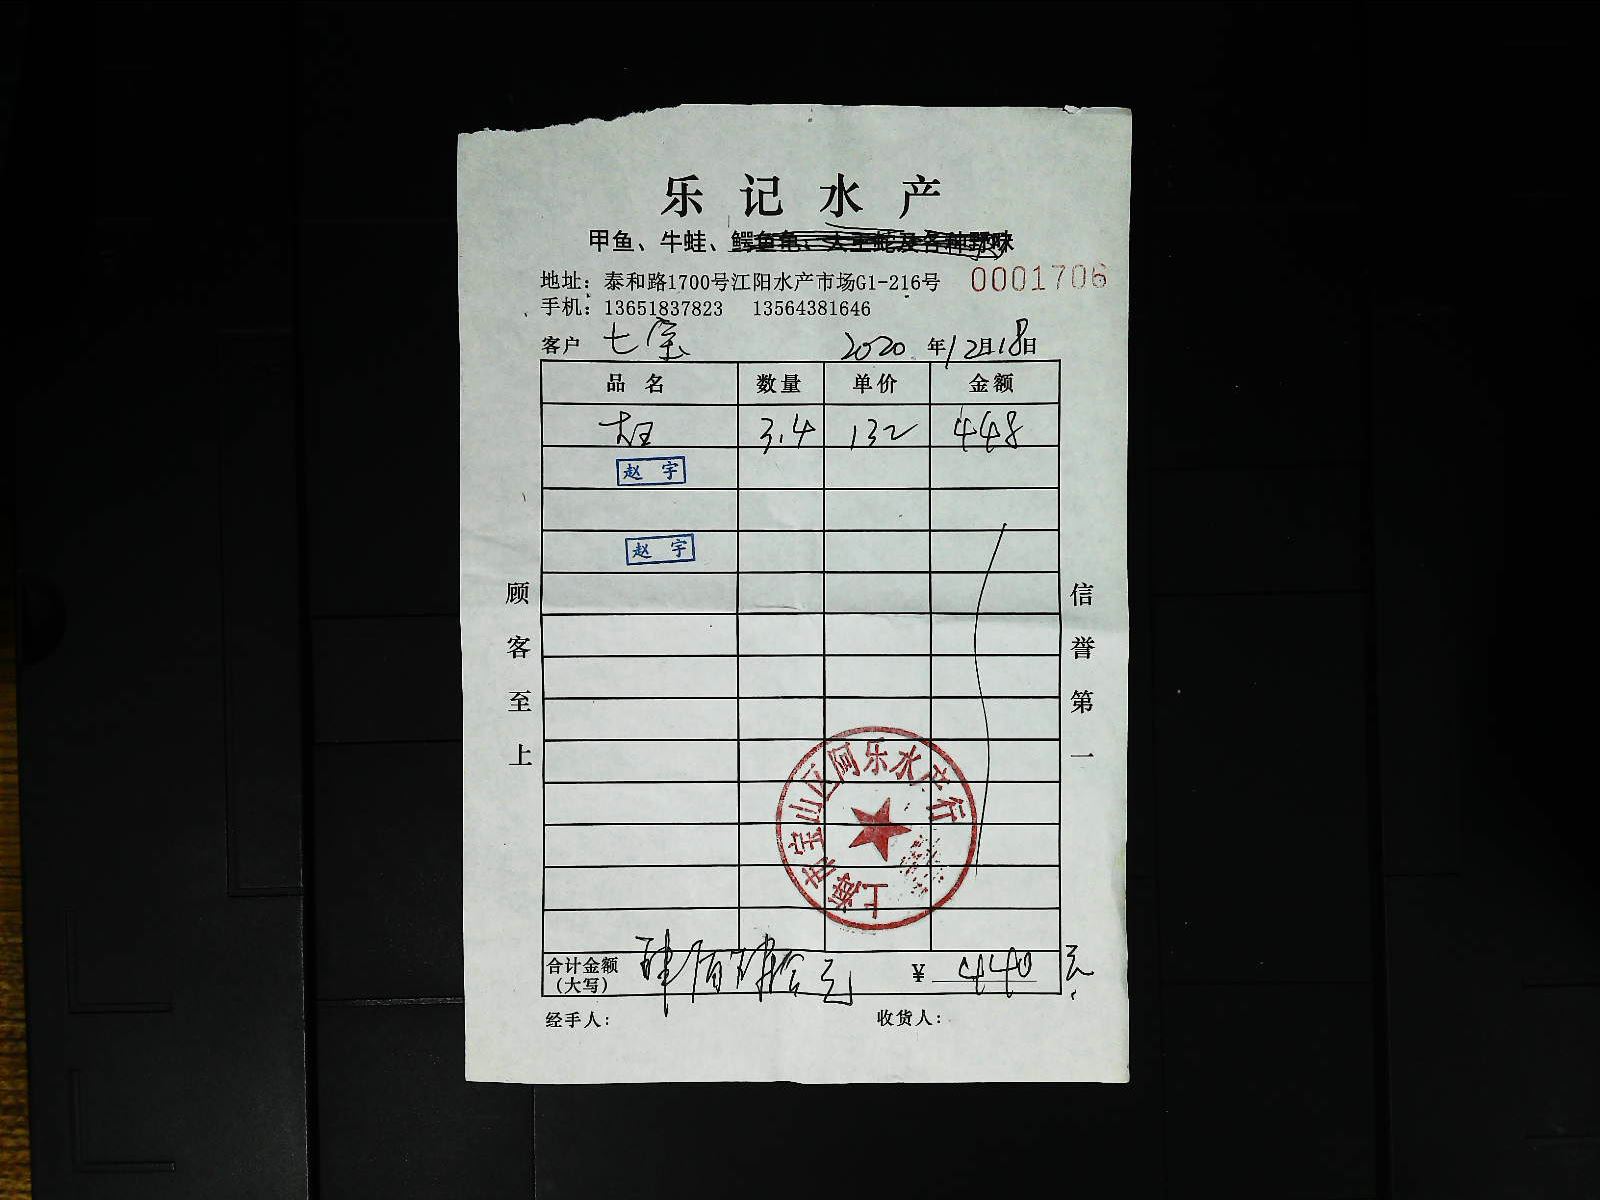 乐记水产
甲鱼、牛蛙、鳄鱼龟、大王蛇及各种野味
地址：泰和路1700号江阳水产市场G1-216号
0001706
手机：13651837823 13564381646
客户 七宝 2020年12月18日
品名 数量 单价 金额
3.4 132 448
赵宇
赵宇
顾客至上
信誉第一
上海市宝山区阿乐水产行
合计金额（大写） 肆佰肆拾元 ¥ 440元
经手人： 收货人：